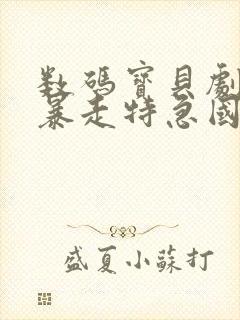 数碼寶貝劇
暴走特急國
盛夏小蘇打